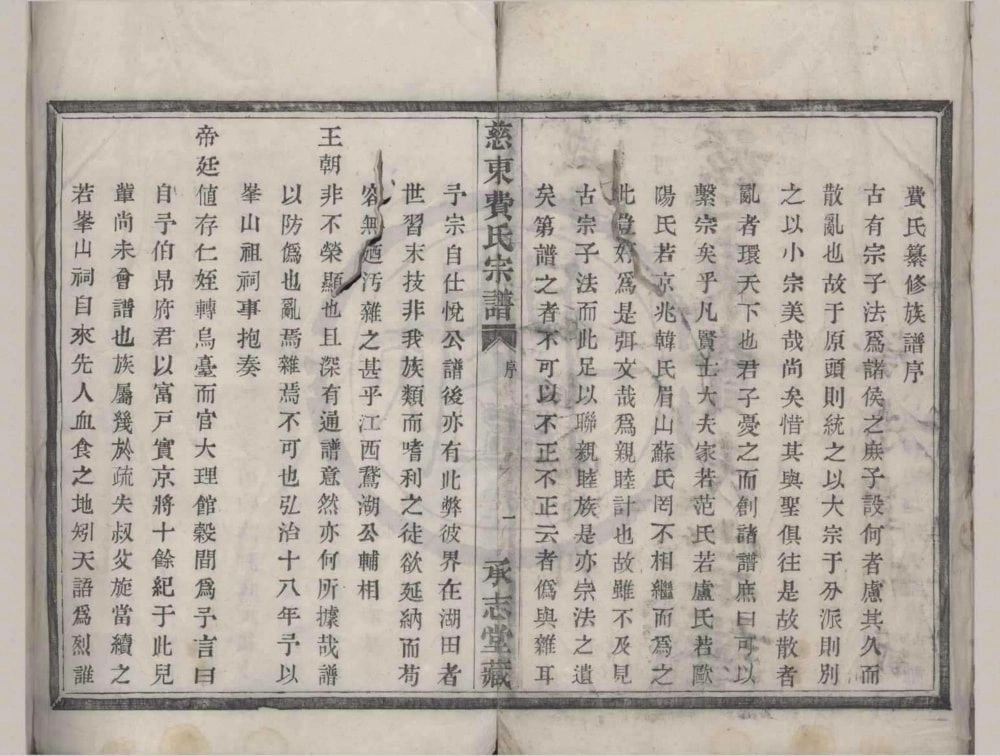 費氏纂修族譜序
古有宗子法爲諸侯之庶子設何者慮其久而
散亂也故于原頭則統之以大宗于分派則別
之以小宗美哉尚矣惜其與聖俱往是故散者
亂者環天下也君子憂之而創諸譜庶曰可以
繫宗矣乎凡賢士大夫家若范氏若盧氏若歐
陽氏若京兆韓氏眉山蘇氏罔不相繼而爲之
此豈好爲是弭文哉爲親睦計也故雖不及見
古宗子法而此足以聯親睦族是亦宗法之遺
矣第譜之者不可以不正不正云者僞與雜耳
慈東費氏宗譜 序 一 承志堂藏
予宗自仕悅公譜後亦有此弊彼界在湖田者
世習末技非我族類而嗜利之徒欲延納而苟
容無廼汚雜之甚乎江西鵞湖公輔相
王朝非不榮顯也且深有通譜意然亦何所據哉譜
以防僞也亂焉雜焉不可也弘治十八年予以
峯山祖祠事抱奏
帝廷値存仁姪轉烏臺而官大理館穀間爲予言曰
自予伯昂府君以富戶實京將十餘紀于此兒
輩尚未會譜也族屬幾於疏失叔父旋當續之
若峯山祠自來先人血食之地矧天語爲烈誰